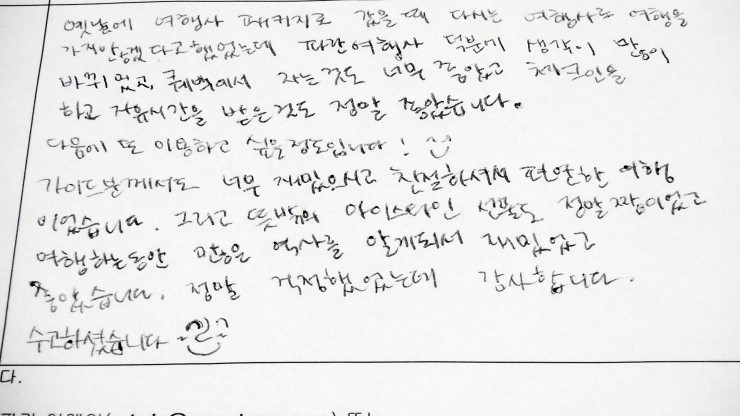 옛날에 여행사 패키지로 갔을 때 다시는 여행사로 여행을
가지 않겠다고 했었는데 파란여행사 덕분에 생각이 많이
바뀌었고, 퀘백에서 자는것도 너무 좋았고 체크인을
하고 자유시간을 받은것도 정말 좋았습니다.
다음에 또 이용하고 싶을정도입니다!
가이드분께서도 너무 재밌으시고 친절하셔서 편안한 여행
이었습니다. 그리고 뜻밖의 아이스와인 선물도 정말 짱이었고
여행하는동안 많은 역사를 알게되서 재밌었고
좋았습니다. 정말 걱정했었는데 감사합니다.
수고하셨습니다
다.